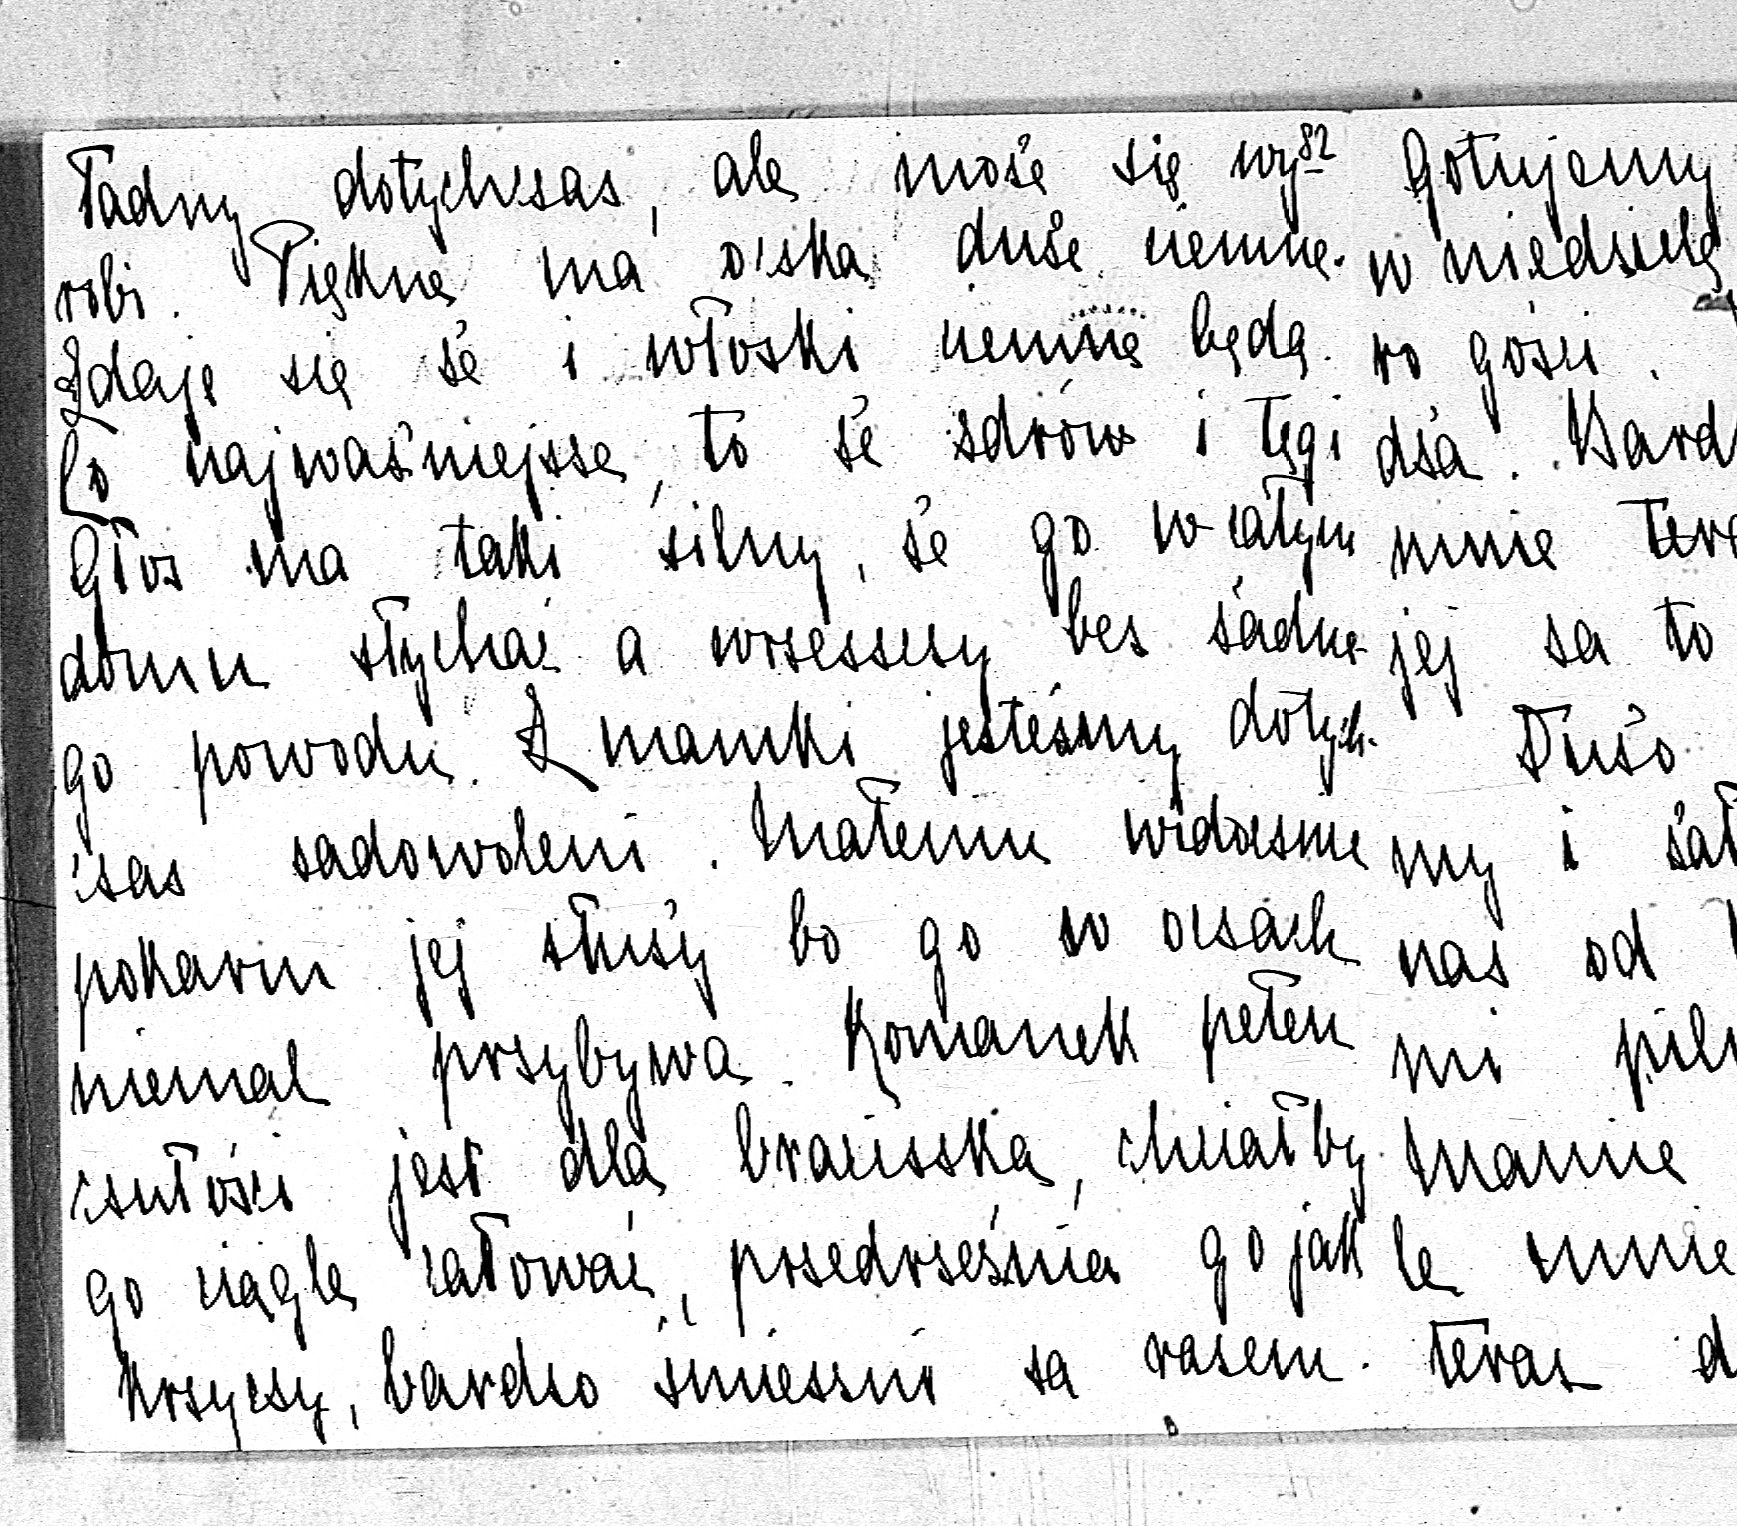 ładny dotychczas, ale może się wy-
robi. Piękne ma oczka duże ciemne.
Zdaje się że i włoski ciemne będą.
Co najważniejsze, to że zdrów i tęgi
Głos ma taki silny, że go w całym
domu słychać a wrzeszczy bez żadne-
go powodu. Z mamki jesteśmy dotych-
czas zadowoleni. Małemu widocznie
pokarm jej służy bo go w oczach
niemal przybywa. Romanek pełen
czułości jest dla braciszka, chciałby
go ciągle całować, przedrzeźnia go jak
krzyczy, bardzo śmieszni są razem.
82
Gotujemy
w niedzielę
ro gości.
dża. Bard
mnie tera
jej za to
Dużo
my i żał
nas od
mi piln
Mamie
le mnie
teraz d